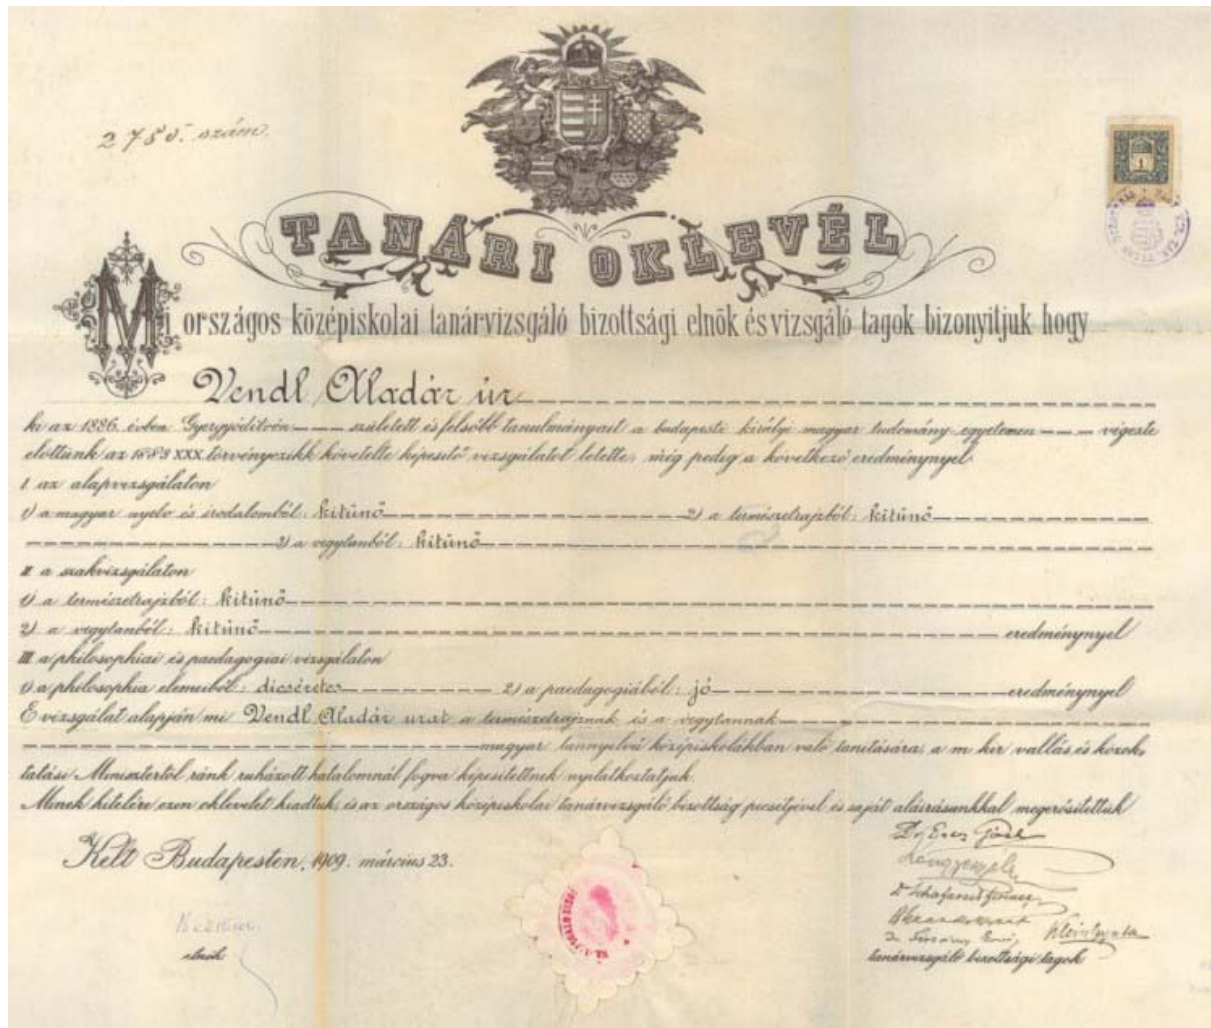 2785. szám.
TANÁRI OKLEVÉL
Mi országos középiskolai tanárvizsgáló bizottsági elnök és vizsgáló tagok bizonyitjuk hogy
Vendl Aladár úr
ki az 1886. évben Gyergyóditrón született és felsőbb tanulmányait a budapesti királyi magyar tudomány egyetemen végezte
előttünk az 1883 XXX. törvényczikk követelte képesítő vizsgálatot letette, még pedig a következő eredménynyel
I. az alapvizsgálaton
1) a magyar nyelv és irodalomból: kitünő 2) a természetrajzból: kitünő
3) a vegytanból: kitünő
II. a szakvizsgálaton
1) a természetrajzból: kitünő
2) a vegytanból: kitünő eredménynyel
III. a philosophiai és paedagogiai vizsgálaton
1) a philosophia elemeiből: dicséretes 2) a paedagogiából: jó eredménynyel
E vizsgálat alapján mi Vendl Aladár urat a természetrajznak és a vegytannak
magyar tannyelvű középiskolákban való tanítására, a m. kir. vallás és közok,
tatási Ministertől ránk ruházott hatalomnál fogva képesítettnek nyilatkoztatjuk.
Minek hiteléře ezen oklevelet kiadtuk, és az országos középiskolai tanárvizsgáló bizottság pecsétjével és saját aláirásunkkal megerősítettük
Kelt Budapesten, 1909. március 23.
elnök
tanárvizsgáló bizottsági tagok